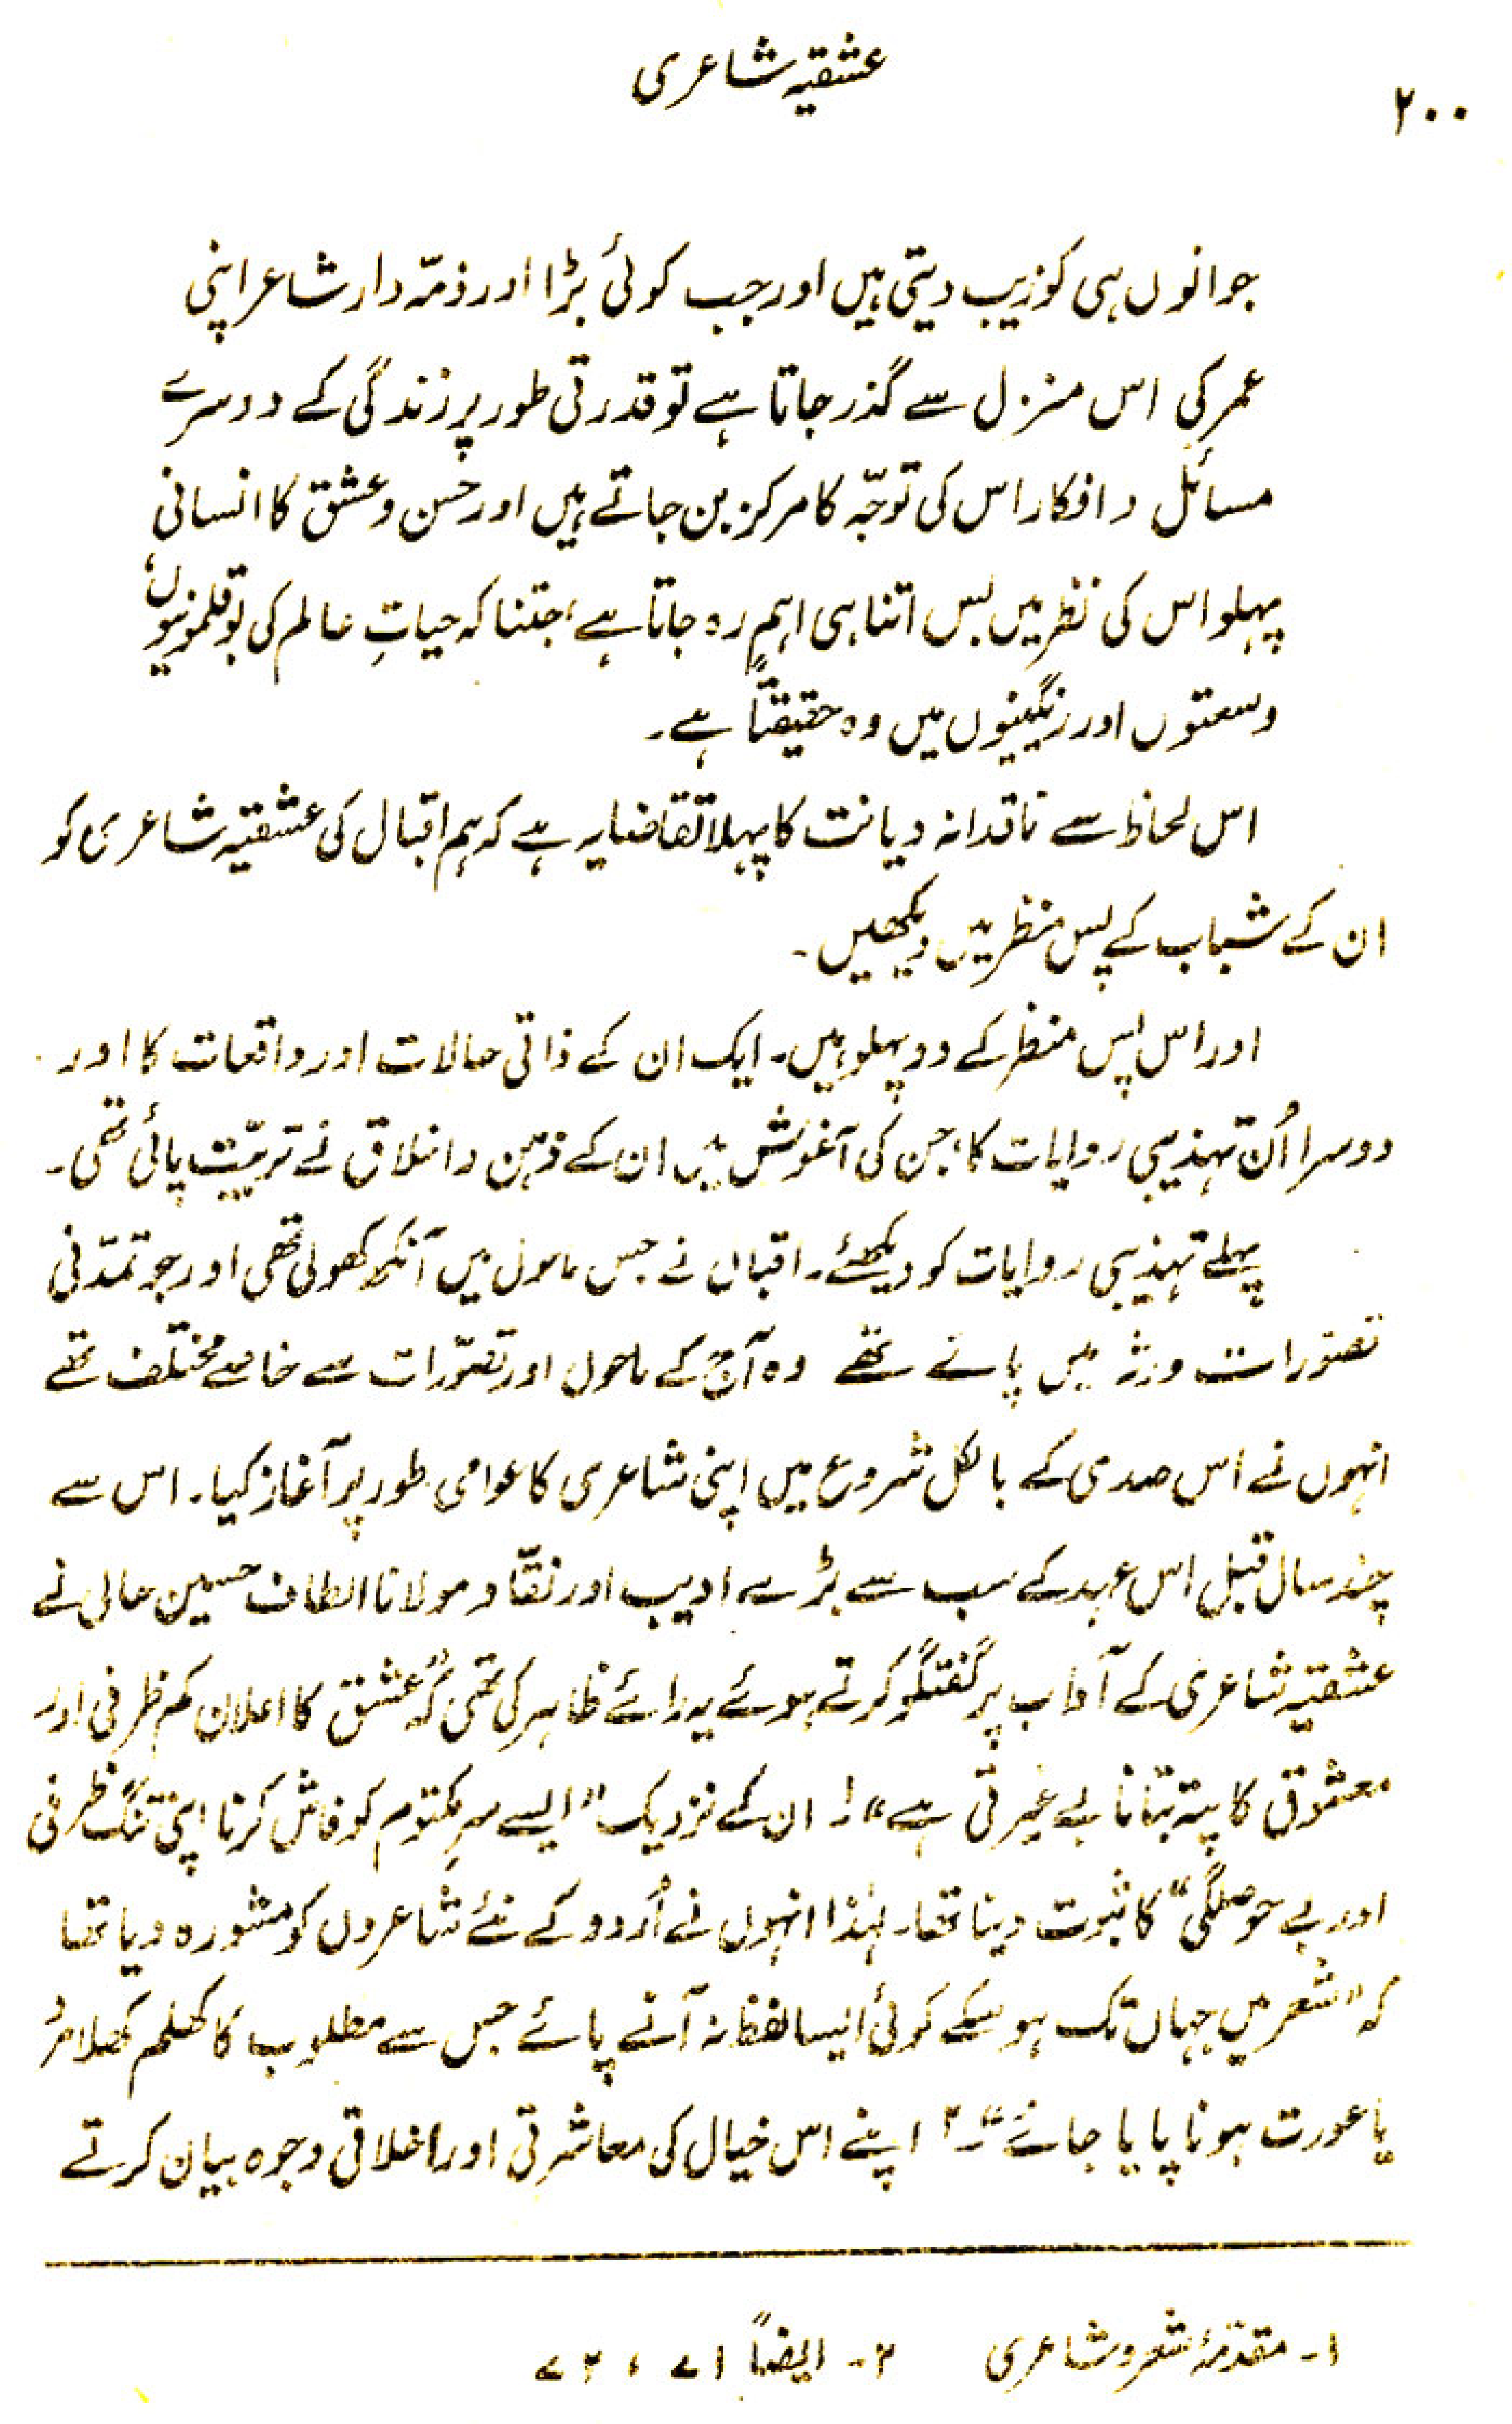 عشقیہ شاعری
۲۰۰
جوانوں ہی کو زیب دیتی ہیں اور جب کوئی بڑا اور ذمّہ دار شاعر اپنی
عمر کی اس منزل سے گذر جاتا ہے تو قدرتی طور پر زندگی کے دوسرے
مسائل و افکار اس کی توجّہ کا مرکز بن جاتے ہیں اور حسن و عشق کا انسانی
پہلو اس کی نظر میں بس اتنا ہی اہم رہ جاتا ہے، جتنا کہ حیاتِ عالم کی بوقلمونیوں،
وسعتوں اور رنگینیوں میں وہ حقیقتاً ہے۔
اس لحاظ سے ناقدانہ دیانت کا پہلا تقاضا یہ ہے کہ ہم اقبال کی عشقیہ شاعری کو
ان کے شباب کے پس منظر میں دیکھیں۔
اور اس پس منظر کے دو پہلو ہیں۔ ایک ان کے ذاتی حالات اور واقعات کا اور
دوسرا اُن تہذیبی روایات کا، جن کی آغوش میں ان کے ذہن و اخلاق نے تربیّت پائی تھی۔
پہلے تہذیبی روایات کو دیکھئے۔ اقبال نے جس ماحول میں آنکھ کھولی تھی اور جو تمدّنی
تصوّرات ورثہ میں پائے تھے وہ آج کے ماحول اور تصوّرات سے خاصے مختلف تھے
انہوں نے اس صدی کے بالکل شروع میں اپنی شاعری کا عوامی طور پر آغاز کیا۔ اس سے
چند سال قبل اس عہد کے سب سے بڑے ادیب اور نقّاد مولانا الطاف حسین حالی نے
عشقیہ شاعری کے آداب پر گفتگو کرتے ہوئے یہ رائے ظاہر کی تھی کہ "عشق کا اعلان کم ظرفی اور
معشوق کا پتہ بتانا بے غیرتی ہے"۔۱ ان کے نزدیک "ایسے سرِ مکتوم کو فاش کرنا اپنی تنگ ظرفی
اور بے حوصلگی" کا ثبوت دینا تھا۔ لہٰذا انہوں نے اُردو کے نئے شاعروں کو مشورہ دیا تھا
کہ "شعر میں جہاں تک ہو سکے کوئی ایسا لفظ نہ آنے پائے جس سے مطلوب کا کھلم کھلا مرد
یا عورت ہونا پایا جائے"۔۲ اپنے اس خیال کی معاشرتی اور اخلاقی وجوہ بیان کرتے
۱۔ مقدّمۂ شعر و شاعری ۲۔ ایضاً ۷۱ ، ۷۲